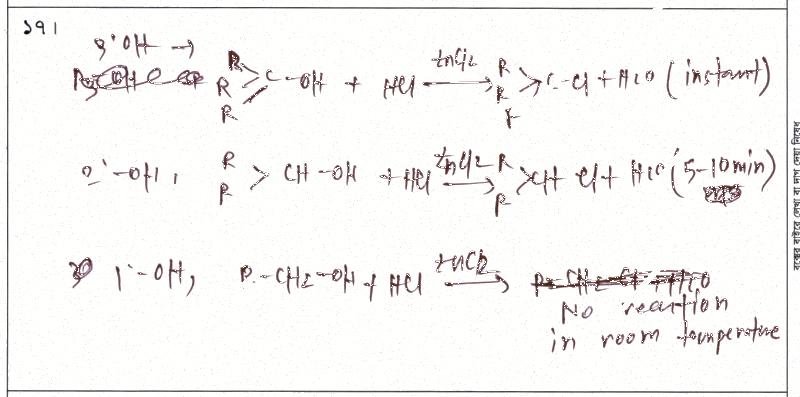 ১৭।
3°OH →
R
R
R
C-OH + HCl ZnCl2 → R
R
R
C-Cl + H2O (instant)
2°-OH, R
R
> CH-OH + HCl ZnCl2 → R
R
> CH Cl + H2O (5-10min)
1°-OH, R-CH2-OH + HCl ZnCl2 →
No reaction
in room temperature
বক্সের বাইরে লেখা বা দাগ দেয়া নিষেধ